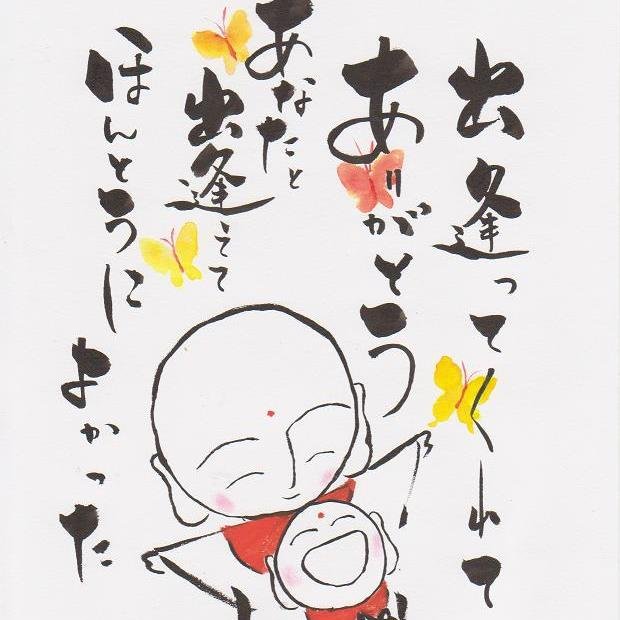 出逢ってくれて
ありがとう
あなたと
出逢えて
ほんとうに
よかった